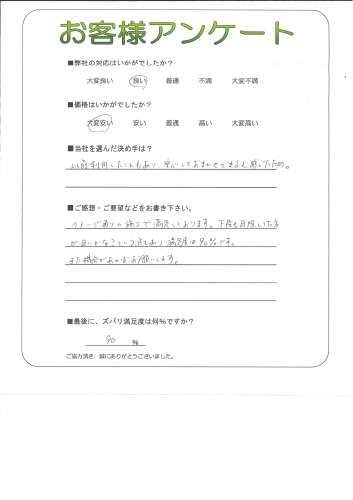 お客様アンケート
■弊社の対応はいかがでしたか？
大変良い 良い 普通 不満 大変不満
■価格はいかがでしたか？
大変安い 安い 普通 高い 大変高い
■当社を選んだ決め手は？
以前利用したこともあり、安心しておまかせできると感じたため。
■ご感想・ご要望などをお書き下さい。
イメージ通りの施工で満足しております。下
が良いかな？という点もあり満足度は90%です。
また機会があればお願いします。
■最後に、ズバリ満足度は何%ですか？
90 %
ご協力頂き、誠にありがとうございました。